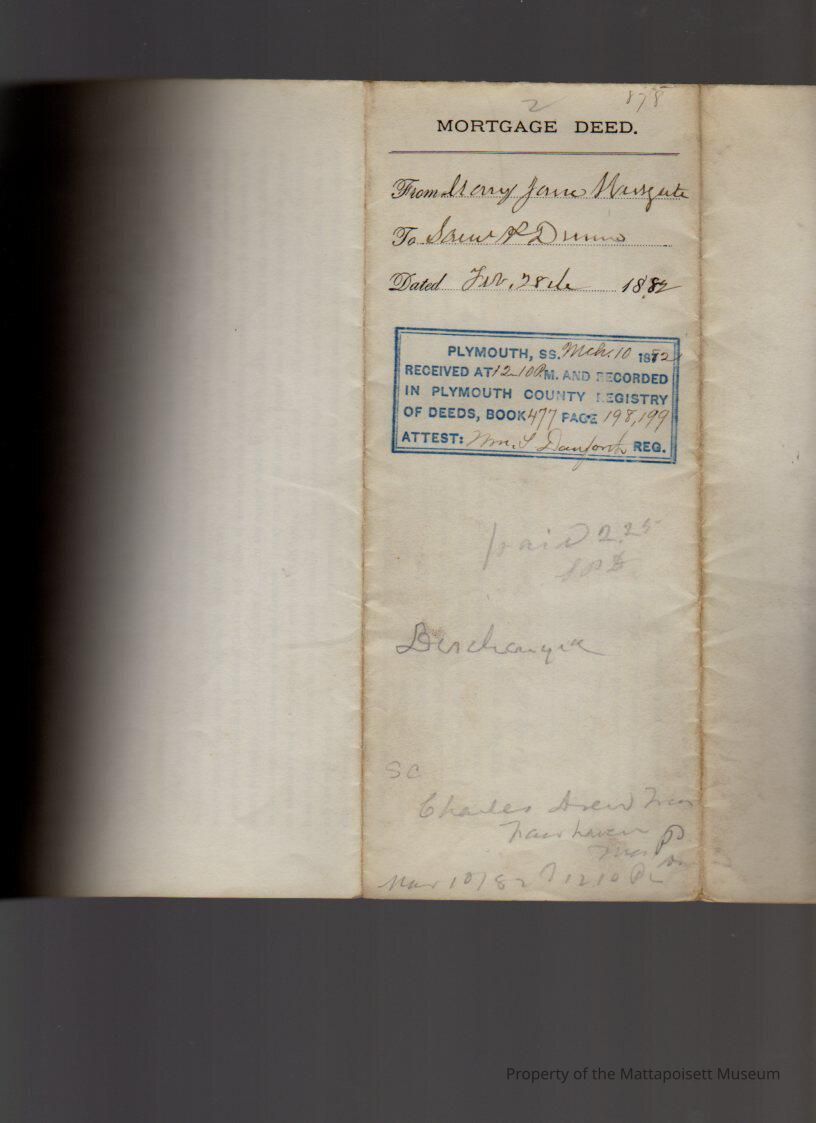 2 878
MORTGAGE DEED.
From Mary Jane
To
Dated Feb. 28th 1882
PLYMOUTH, SS. Mch. 10 1882
RECEIVED AT 12-10 P.M. AND RECORDED
IN PLYMOUTH COUNTY REGISTRY
OF DEEDS, BOOK 477 PAGE 198,199
ATTEST: Wm. S Danforth REG.
paid 2.25
SC
Charles Drew
Fairhaven
Mar 10/82 12 10 P
Property of the Mattapoisett Museum